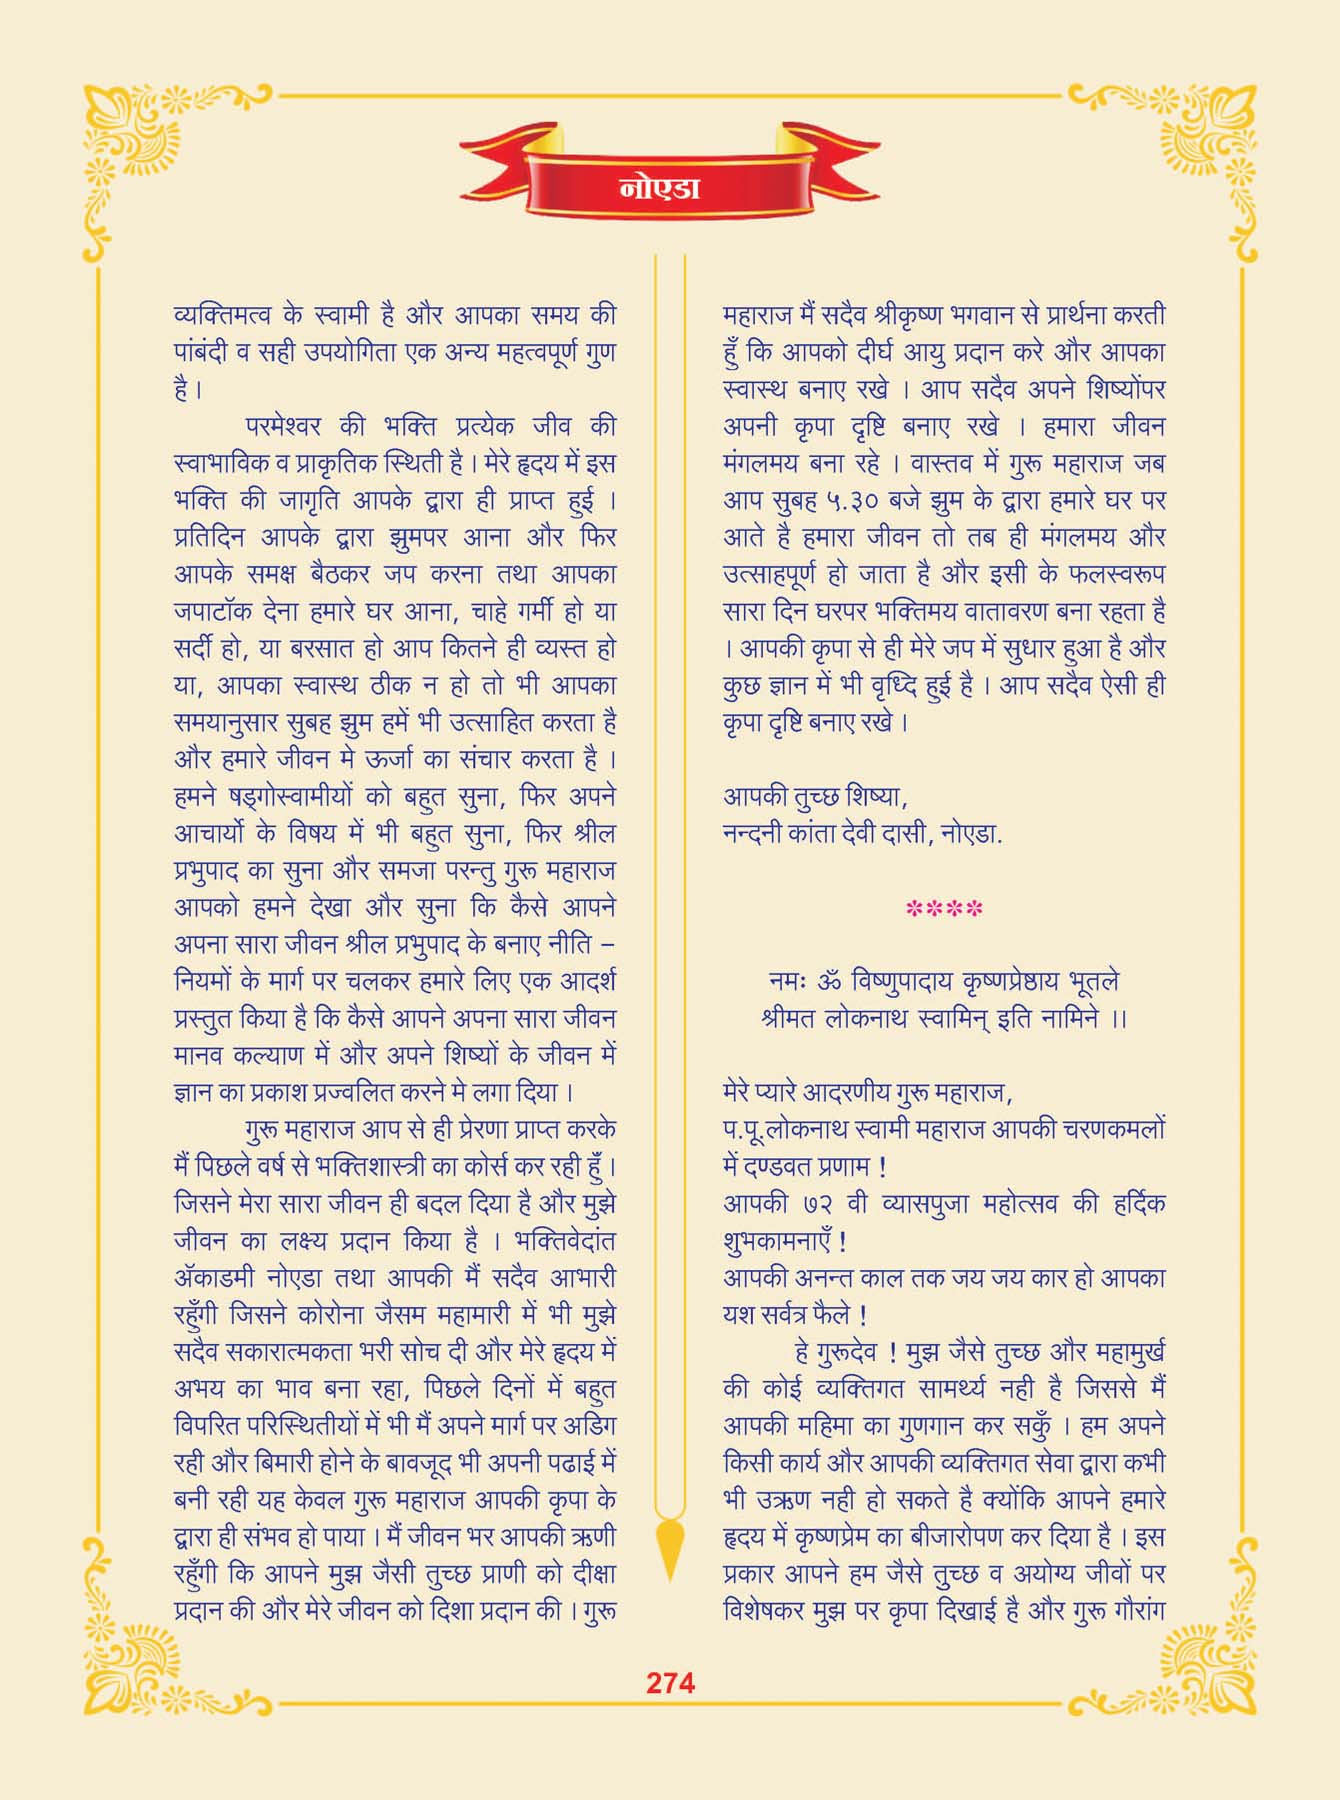 नोएडा
व्यक्तिमत्व के स्वामी है और आपका समय की
पांबंदी व सही उपयोगिता एक अन्य महत्वपूर्ण गुण
है ।
परमेश्वर की भक्ति प्रत्येक जीव की
स्वाभाविक व प्राकृतिक स्थिती है । मेरे हृदय में इस
भक्ति की जागृति आपके द्वारा ही प्राप्त हुई ।
प्रतिदिन आपके द्वारा झुमपर आना और फिर
आपके समक्ष बैठकर जप करना तथा आपका
जपाटॉक देना हमारे घर आना, चाहे गर्मी हो या
सर्दी हो, या बरसात हो आप कितने ही व्यस्त हो
या, आपका स्वास्थ ठीक न हो तो भी आपका
समयानुसार सुबह झुम हमें भी उत्साहित करता है
और हमारे जीवन मे ऊर्जा का संचार करता है ।
हमने षड्गोस्वामीयों को बहुत सुना, फिर अपने
आचार्यो के विषय में भी बहुत सुना, फिर श्रील
प्रभुपाद का सुना और समजा परन्तु गुरू महाराज
आपको हमने देखा और सुना कि कैसे आपने
अपना सारा जीवन श्रील प्रभुपाद के बनाए नीति –
नियमों के मार्ग पर चलकर हमारे लिए एक आदर्श
प्रस्तुत किया है कि कैसे आपने अपना सारा जीवन
मानव कल्याण में और अपने शिष्यों के जीवन में
ज्ञान का प्रकाश प्रज्वलित करने मे लगा दिया ।
गुरू महाराज आप से ही प्रेरणा प्राप्त करके
मैं पिछले वर्ष से भक्तिशास्त्री का कोर्स कर रही हुँ ।
जिसने मेरा सारा जीवन ही बदल दिया है और मुझे
जीवन का लक्ष्य प्रदान किया है । भक्तिवेदांत
ॲकाडमी नोएडा तथा आपकी मैं सदैव आभारी
रहुँगी जिसने कोरोना जैसम महामारी में भी मुझे
सदैव सकारात्मकता भरी सोच दी और मेरे हृदय में
अभय का भाव बना रहा, पिछले दिनों में बहुत
विपरित परिस्थितीयों में भी मैं अपने मार्ग पर अडिग
रही और बिमारी होने के बावजूद भी अपनी पढाई में
बनी रही यह केवल गुरू महाराज आपकी कृपा के
द्वारा ही संभव हो पाया । मैं जीवन भर आपकी ऋणी
रहुँगी कि आपने मुझ जैसी तुच्छ प्राणी को दीक्षा
प्रदान की और मेरे जीवन को दिशा प्रदान की । गुरू
महाराज मैं सदैव श्रीकृष्ण भगवान से प्रार्थना करती
हुँ कि आपको दीर्घ आयु प्रदान करे और आपका
स्वास्थ बनाए रखे । आप सदैव अपने शिष्योंपर
अपनी कृपा दृष्टि बनाए रखे । हमारा जीवन
मंगलमय बना रहे । वास्तव में गुरू महाराज जब
आप सुबह ५.३० बजे झुम के द्वारा हमारे घर पर
आते है हमारा जीवन तो तब ही मंगलमय और
उत्साहपूर्ण हो जाता है और इसी के फलस्वरूप
सारा दिन घरपर भक्तिमय वातावरण बना रहता है
। आपकी कृपा से ही मेरे जप में सुधार हुआ है और
कुछ ज्ञान में भी वृध्दि हुई है । आप सदैव ऐसी ही
कृपा दृष्टि बनाए रखे ।
आपकी तुच्छ शिष्या,
नन्दनी कांता देवी दासी, नोएडा.
****
नमः ॐ विष्णुपादाय कृष्णप्रेष्ठाय भूतले
श्रीमत लोकनाथ स्वामिन् इति नामिने ।।
मेरे प्यारे आदरणीय गुरू महाराज,
प.पू.लोकनाथ स्वामी महाराज आपकी चरणकमलों
में दण्डवत प्रणाम !
आपकी ७२ वी व्यासपुजा महोत्सव की हर्दिक
शुभकामनाएँ !
आपकी अनन्त काल तक जय जय कार हो आपका
यश सर्वत्र फैले !
हे गुरूदेव ! मुझ जैसे तुच्छ और महामुर्ख
की कोई व्यक्तिगत सामर्थ्य नही है जिससे मैं
आपकी महिमा का गुणगान कर सकुँ । हम अपने
किसी कार्य और आपकी व्यक्तिगत सेवा द्वारा कभी
भी उऋण नही हो सकते है क्योंकि आपने हमारे
हृदय में कृष्णप्रेम का बीजारोपण कर दिया है । इस
प्रकार आपने हम जैसे तुच्छ व अयोग्य जीवों पर
विशेषकर मुझ पर कृपा दिखाई है और गुरू गौरांग
274